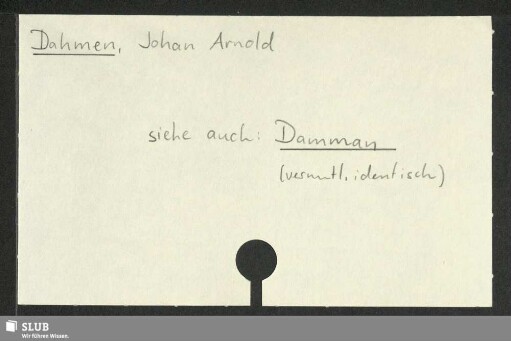 Dahmen, Johan Arnold
siehe auch: Damman
(vermutl. identisch)
SLUB
Wir führen Wissen.